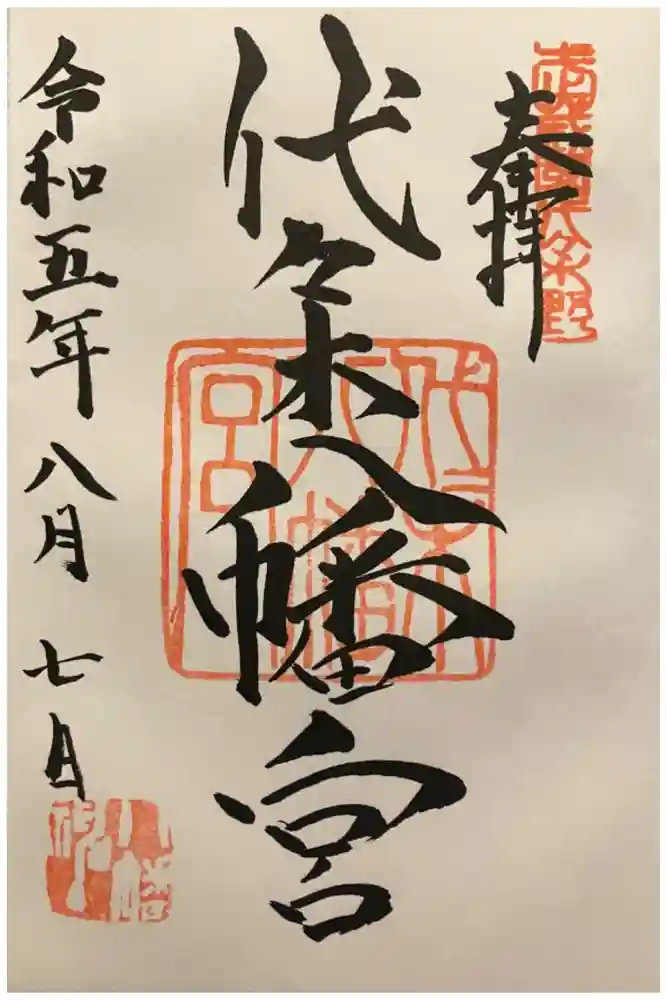 奉拝
代々木八幡宮
令和五年八月七日
代々木八幡宮
八幡